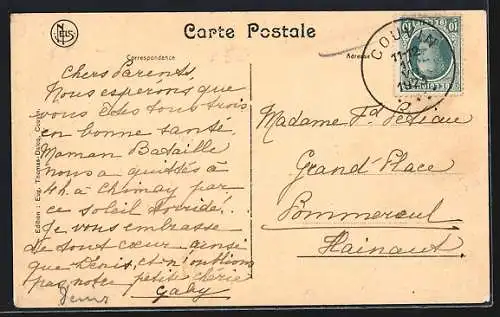 Carte Postale
Correspondance
Adresse
NELS
COUVIN
11-12
1923
BELGIQUE
10
Chers Parents,
Nous espérons que
vous êtes tous trois
en bonne santé.
Maman Bataille
nous a quittés à
4h. à Chimay par
ce soleil torride.
Je vous embrasse
de tout cœur ainsi
que Denis, et n'oublions
pas notre petite chérie
Gaby
Madame Fd
Grand' Place
Pommeroeul
Hainaut
Edition : Eug. Thomas-Dulcq, Couvin.